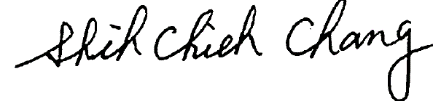 Shih Chieh Chang